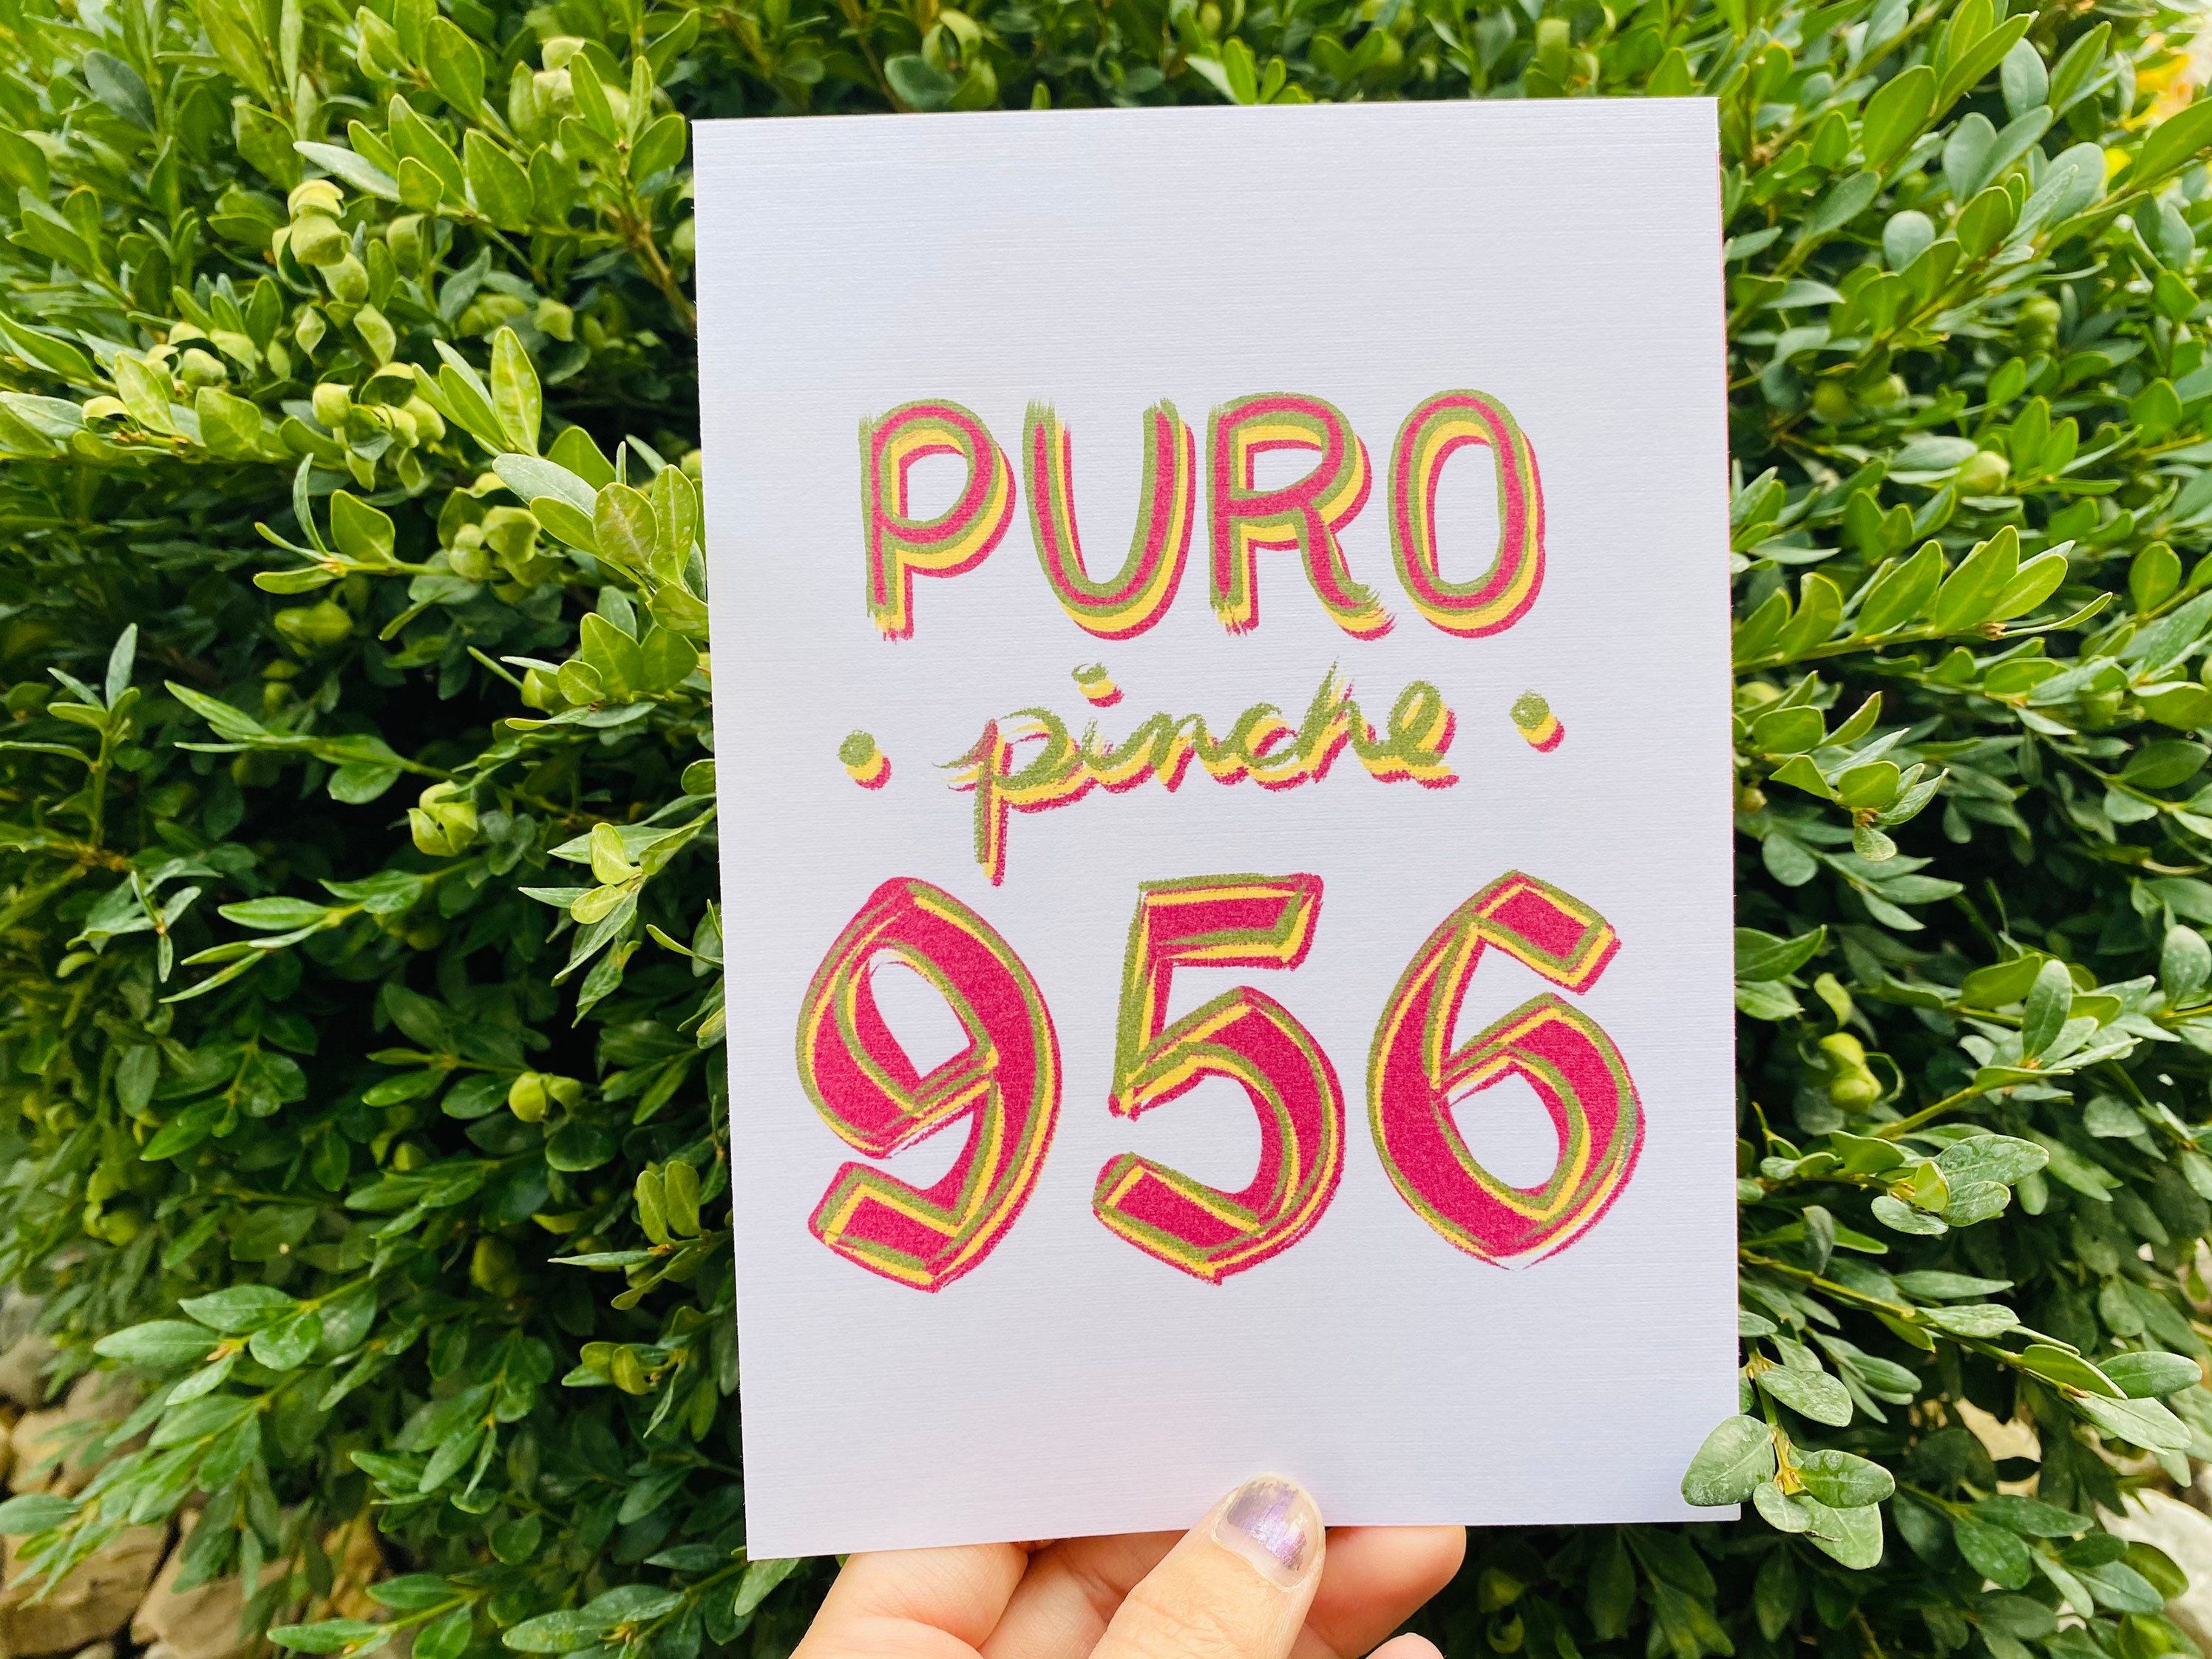 PURO
• pinche •
956